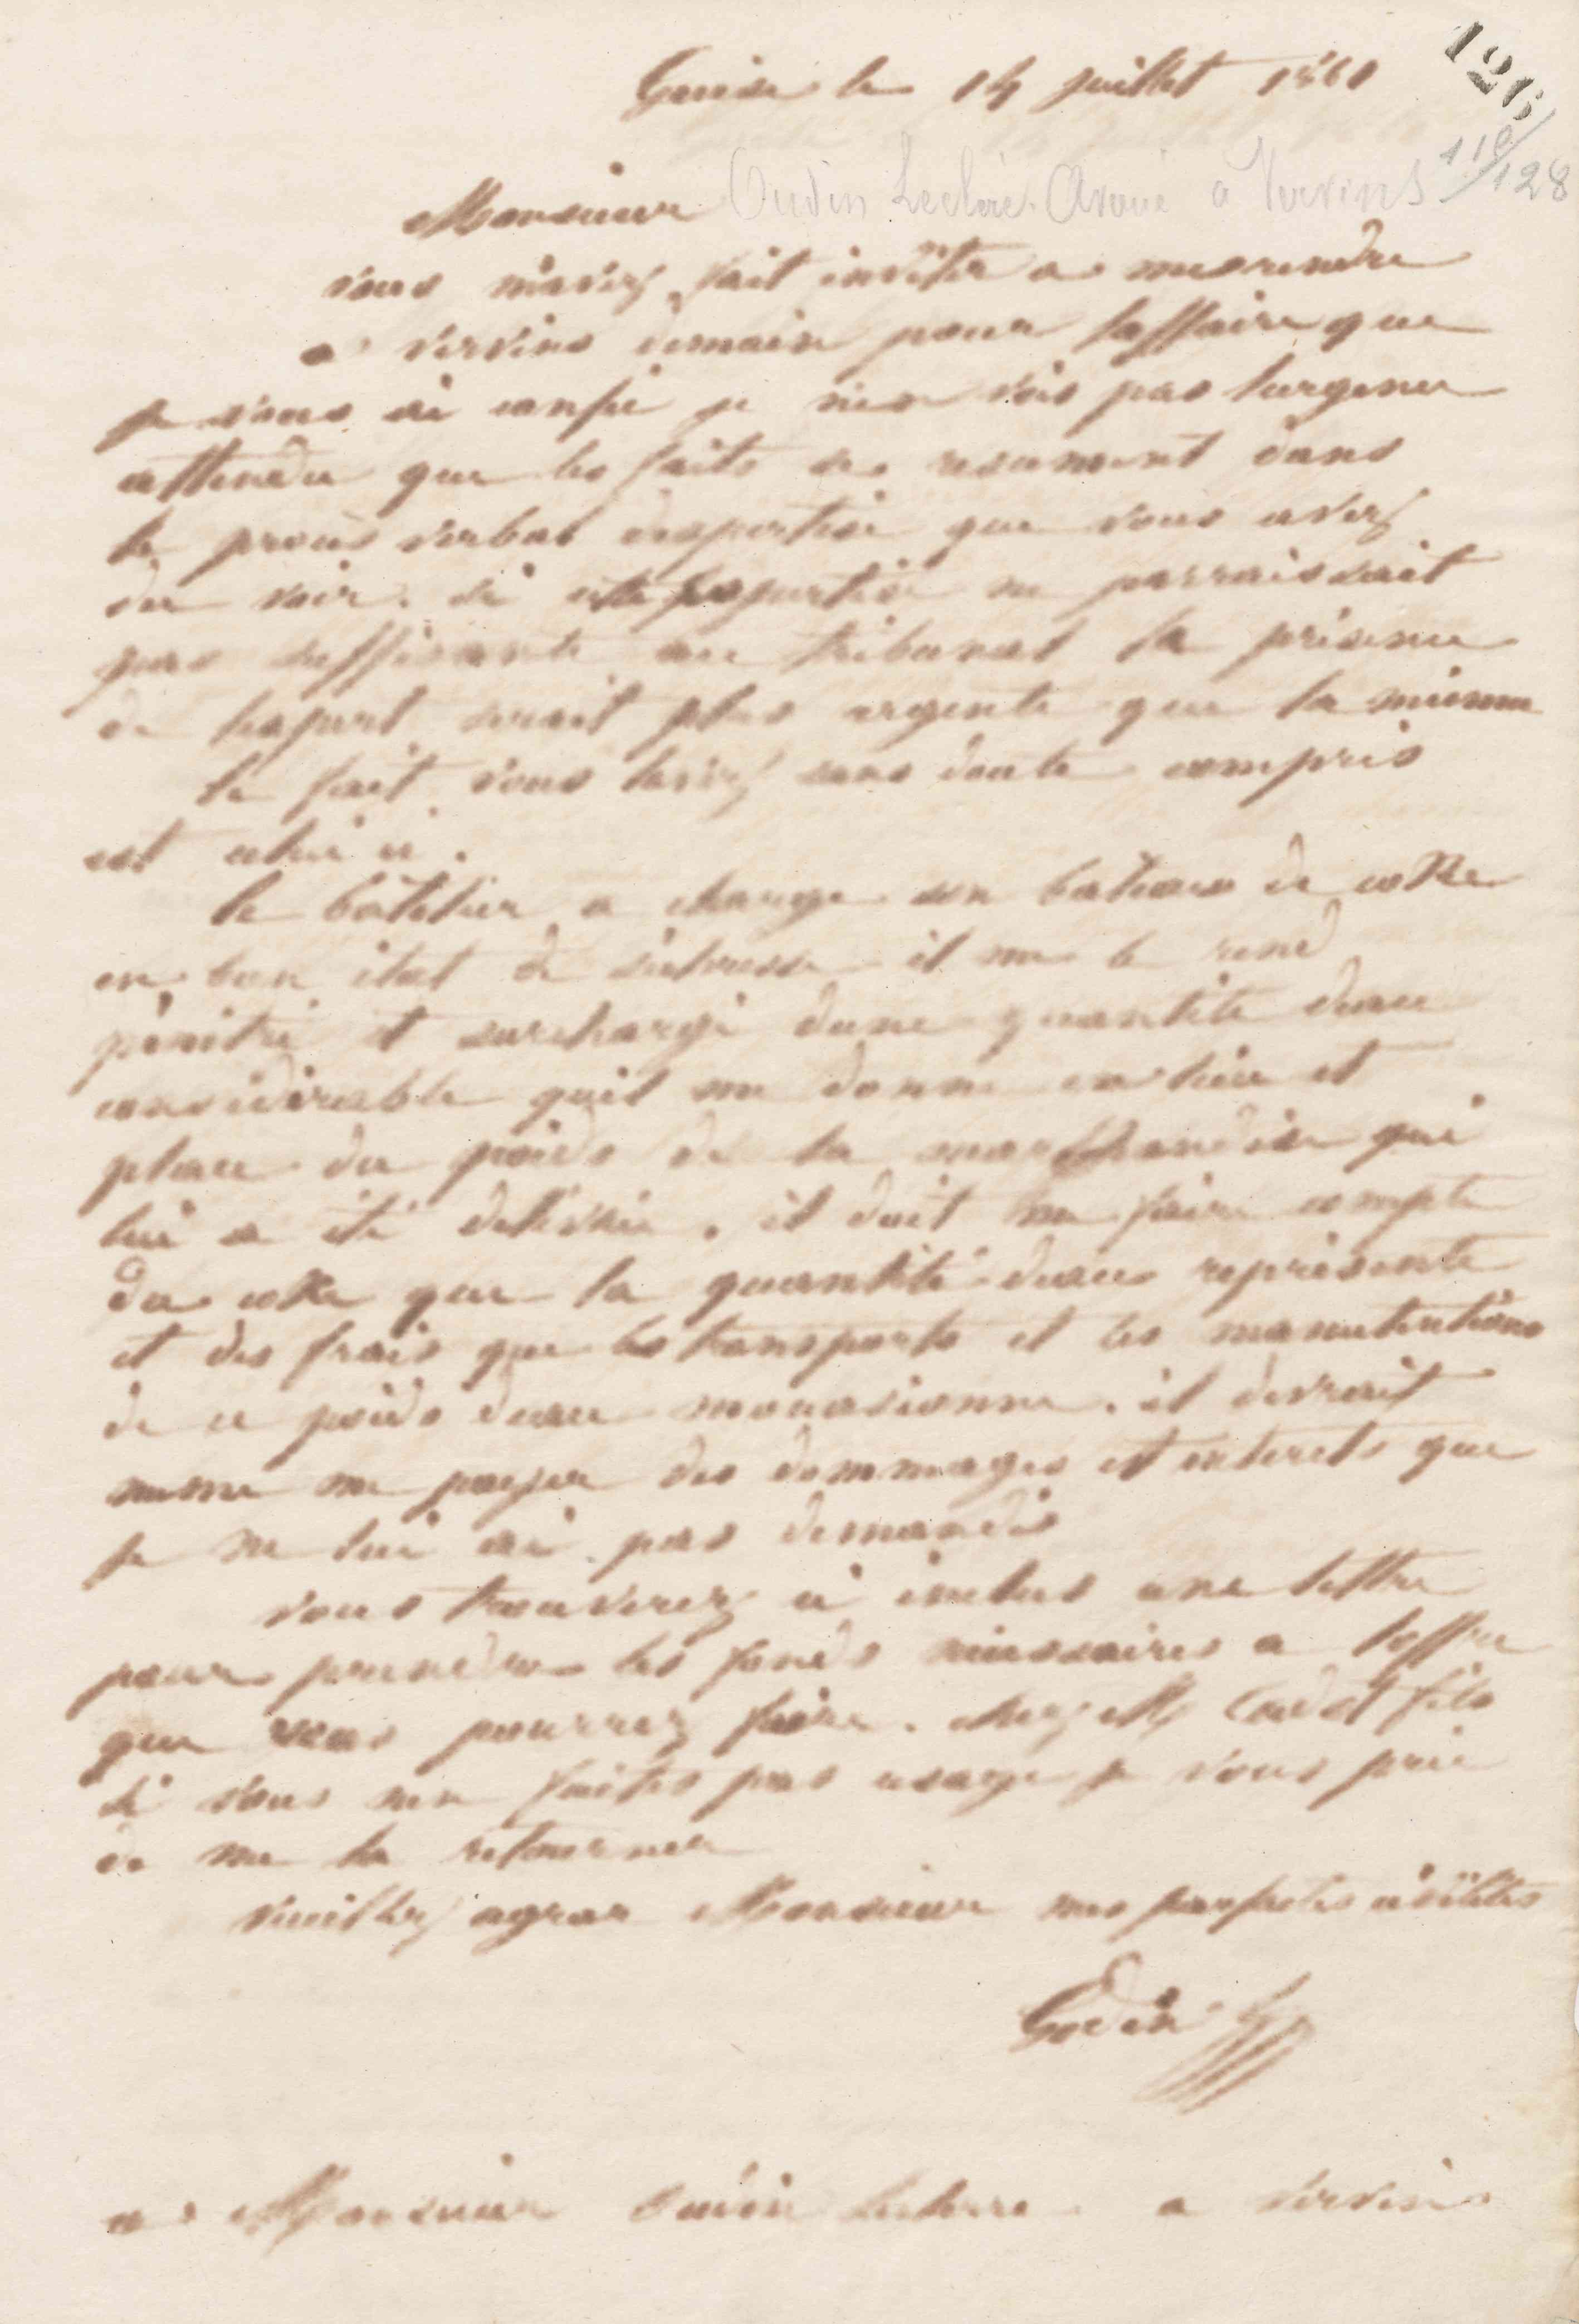 126
Guise le 14 juillet 1861
110/128
Monsieur Oudin Leclère. Avoué à Vervins
vous m'avez fait inviter a me rendre
a Vervins demain pour laffaire que
je vous ai confié je n'en vois pas lurgence
attendu que les faits se resument dans
le procès verbal dexpertise que vous avez
du voir. si cette expertise ne parraissait
pas suffisante au tribunal la présence
de lexpert serait plus urgente que la mienne
le fait vous lavez sans doute compris
est celui ci.
le bâtelier a chargé son bateau de coke
en bon état de sécheresse il me le rend
pénétré et surchargé dune quantité deau
considérable quil me donne en lieu et
place du poids de la marchandise qui
lui a été délivrée. il doit me faire compte
du coke que la quantité deau représente
et des frais que les transports et les manutentions
de ce poids deau moccasionne. il devrait
meme me payer des dommages et interets que
je ne lui ai pas demandés
vous trouverez ci inclus une lettre
pour prendre les fonds nécessaires a loffre
que vous pourrez faire. chez MM Cadet fils
si vous nen faites pas usage je vous prie
de me la retourner
veuillez agréer Monsieur mes parfaites civilités
Godin
a Monsieur Oudin Leclerc a Vervins